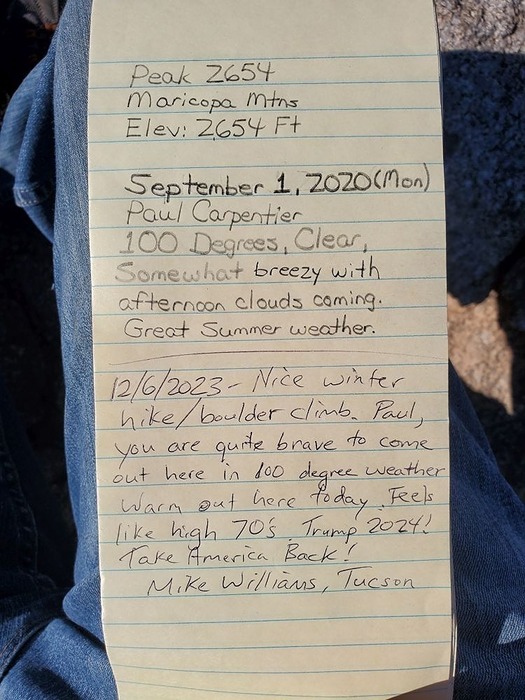 Peak 2654
Maricopa Mtns
Elev: 2654 Ft
September 1, 2020 (Mon)
Paul Carpentier
100 Degrees, Clear,
Somewhat breezy with
afternoon clouds coming.
Great Summer weather.
12/6/2023 - Nice winter
hike/boulder climb. Paul,
you are quite brave to come
out here in 100 degree weather
Warm out here today. Feels
like high 70's. Trump 2024!
Take America Back!
Mike Williams, Tucson